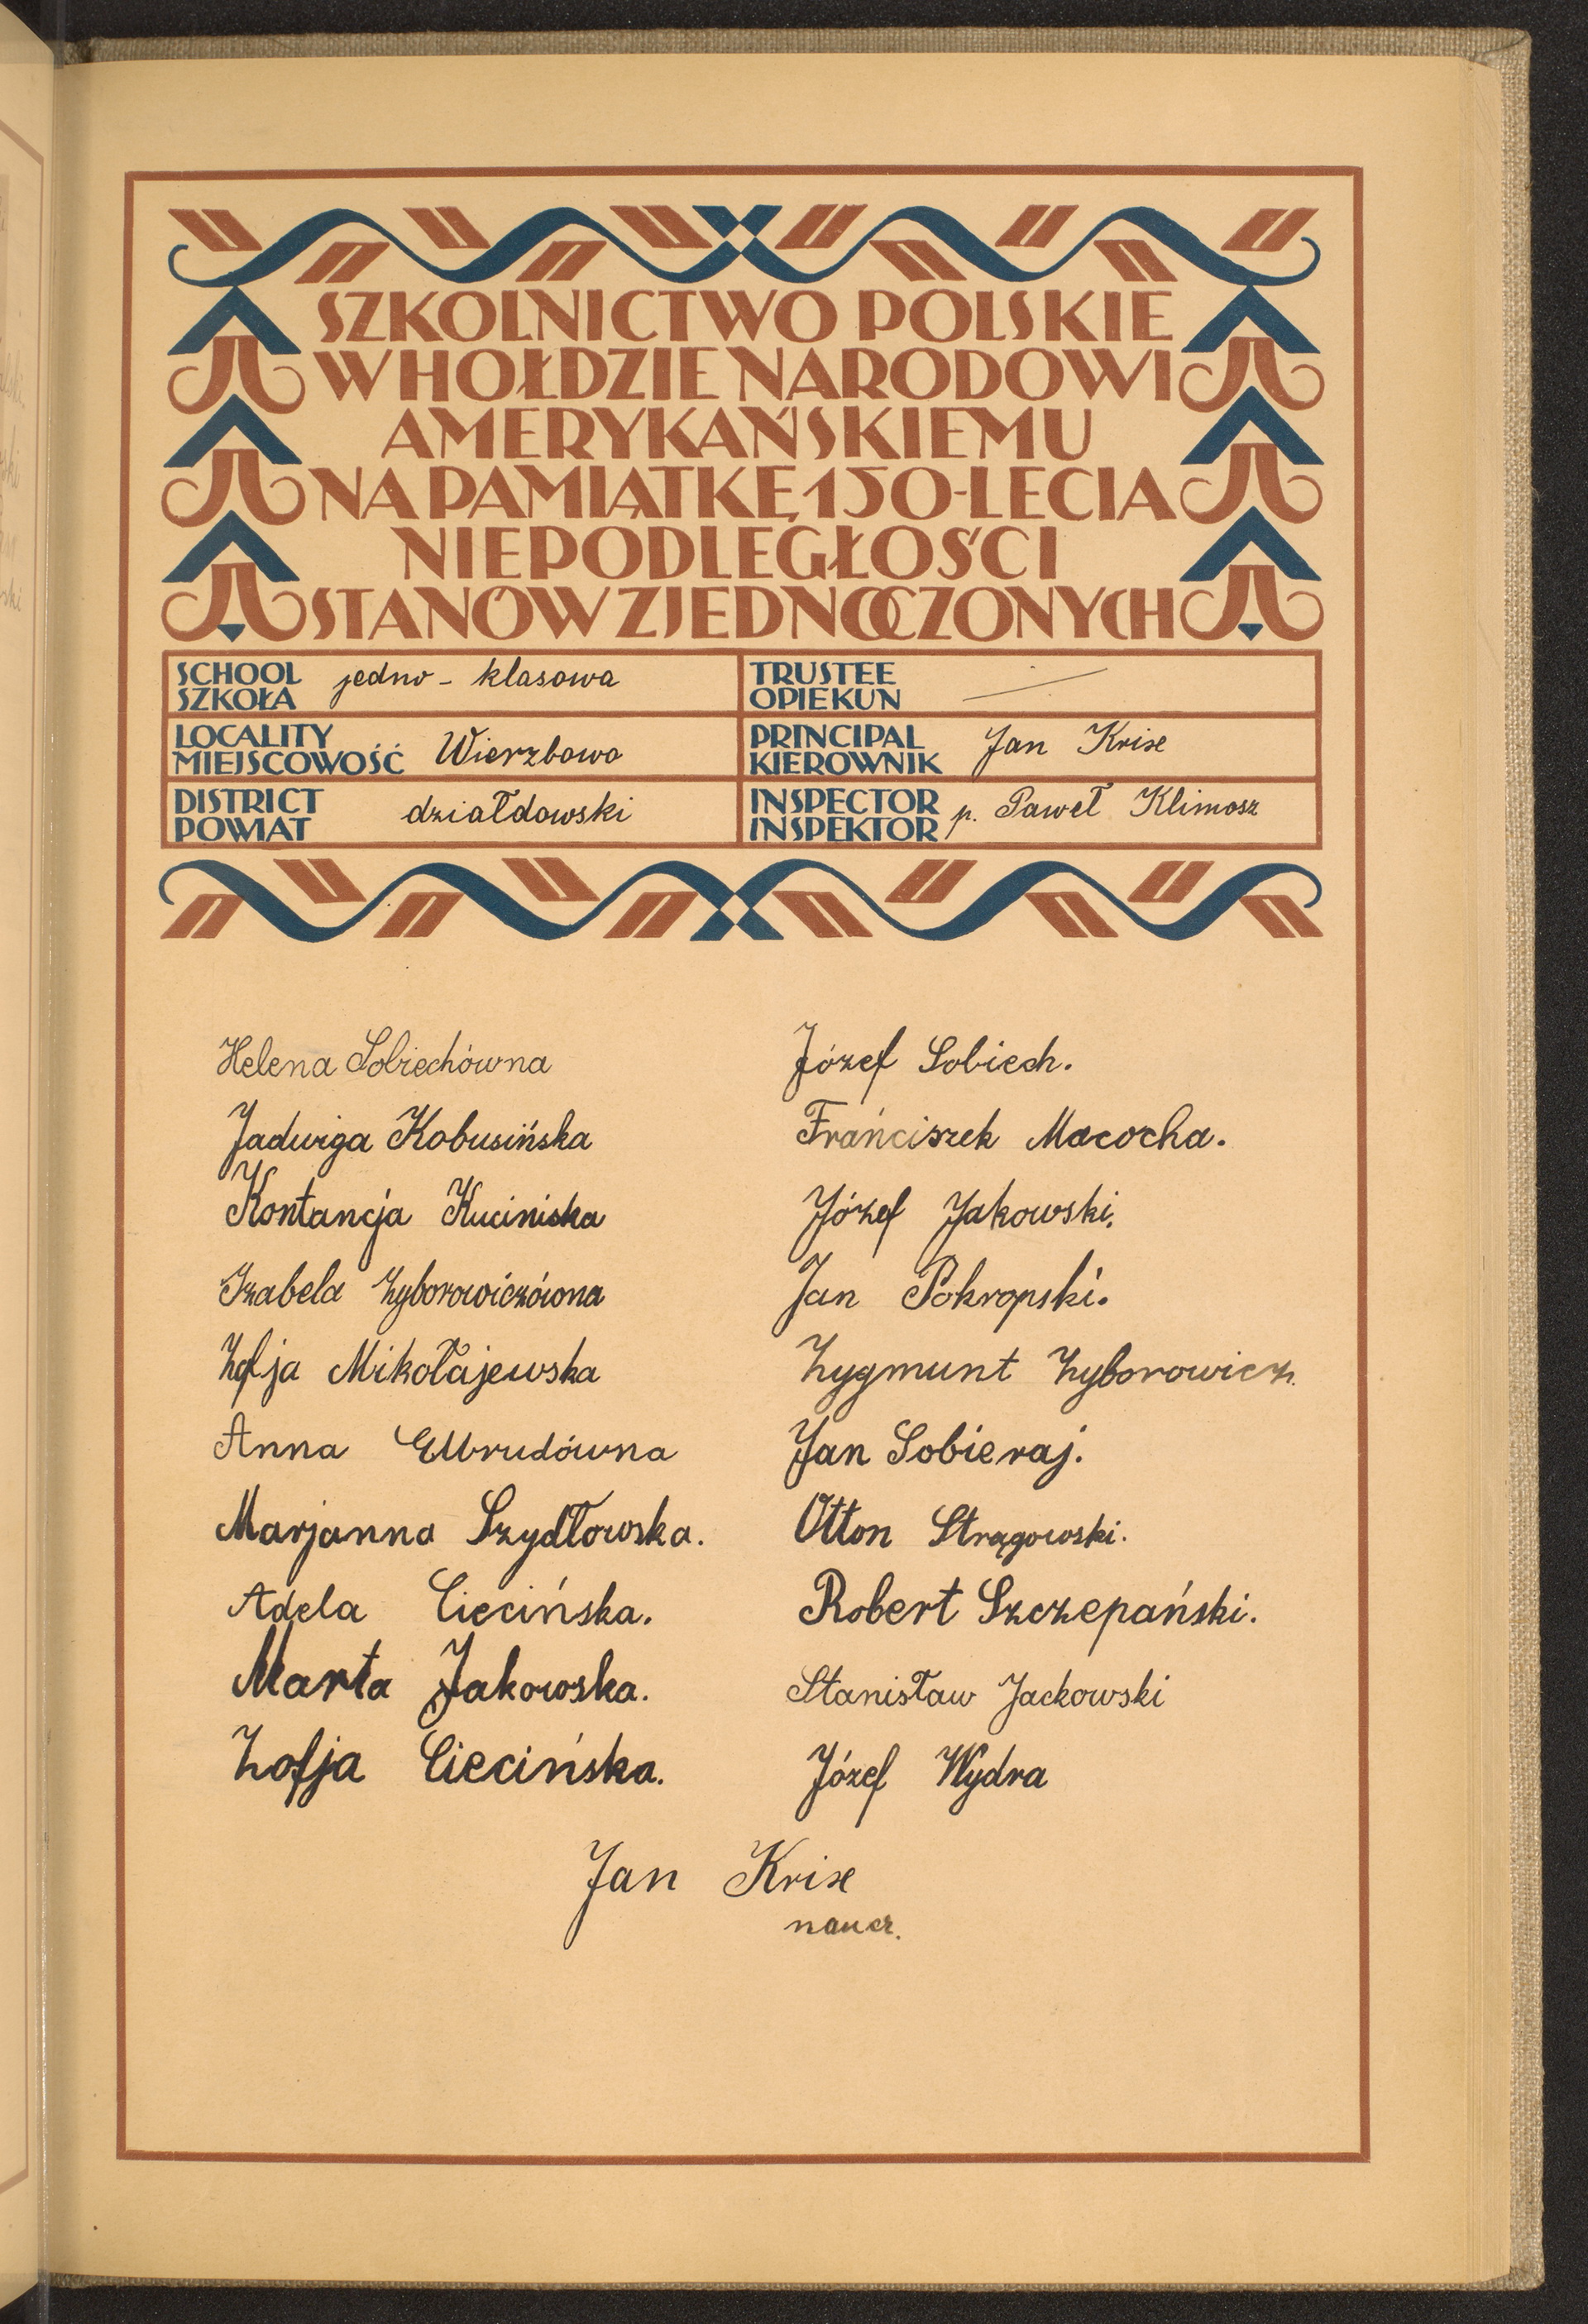 SZKOLNICTWO POLSKIE
W HOŁDZIE NARODOWI
AMERYKAŃSKIEMU
NA PAMIĄTKĘ 150-LECIA
NIEPODLEGŁOŚCI
STANÓW ZJEDNOCZONYCH
SCHOOL
SZKOŁA jedno-klasowa
TRUSTEE
OPIEKUN —
LOCALITY
MIEJSCOWOŚĆ Wierzbowo
PRINCIPAL
KIEROWNIK Jan Krise
DISTRICT
POWIAT działdowski
INSPECTOR
INSPEKTOR p. Paweł Klimosz
Helena Sobiechówna
Jadwiga Kobusińska
Kontancja Kuciniska
Izabela Zyborowiczówna
Zofja Mikołajewska
Anna
Marjanna Szydłowska.
Adela Ciecińska.
Marta Jakowska.
Zofja Ciecińska.
Józef Sobiech.
Frańciszek Macocha.
Józef Jakowski.
Jan Pokropski.
Zygmunt Zyborowicz.
Jan Sobieraj.
Otton Strągowski.
Robert Szczepański.
Stanisław Jackowski
Józef Wydra
Jan Krise
naucz.